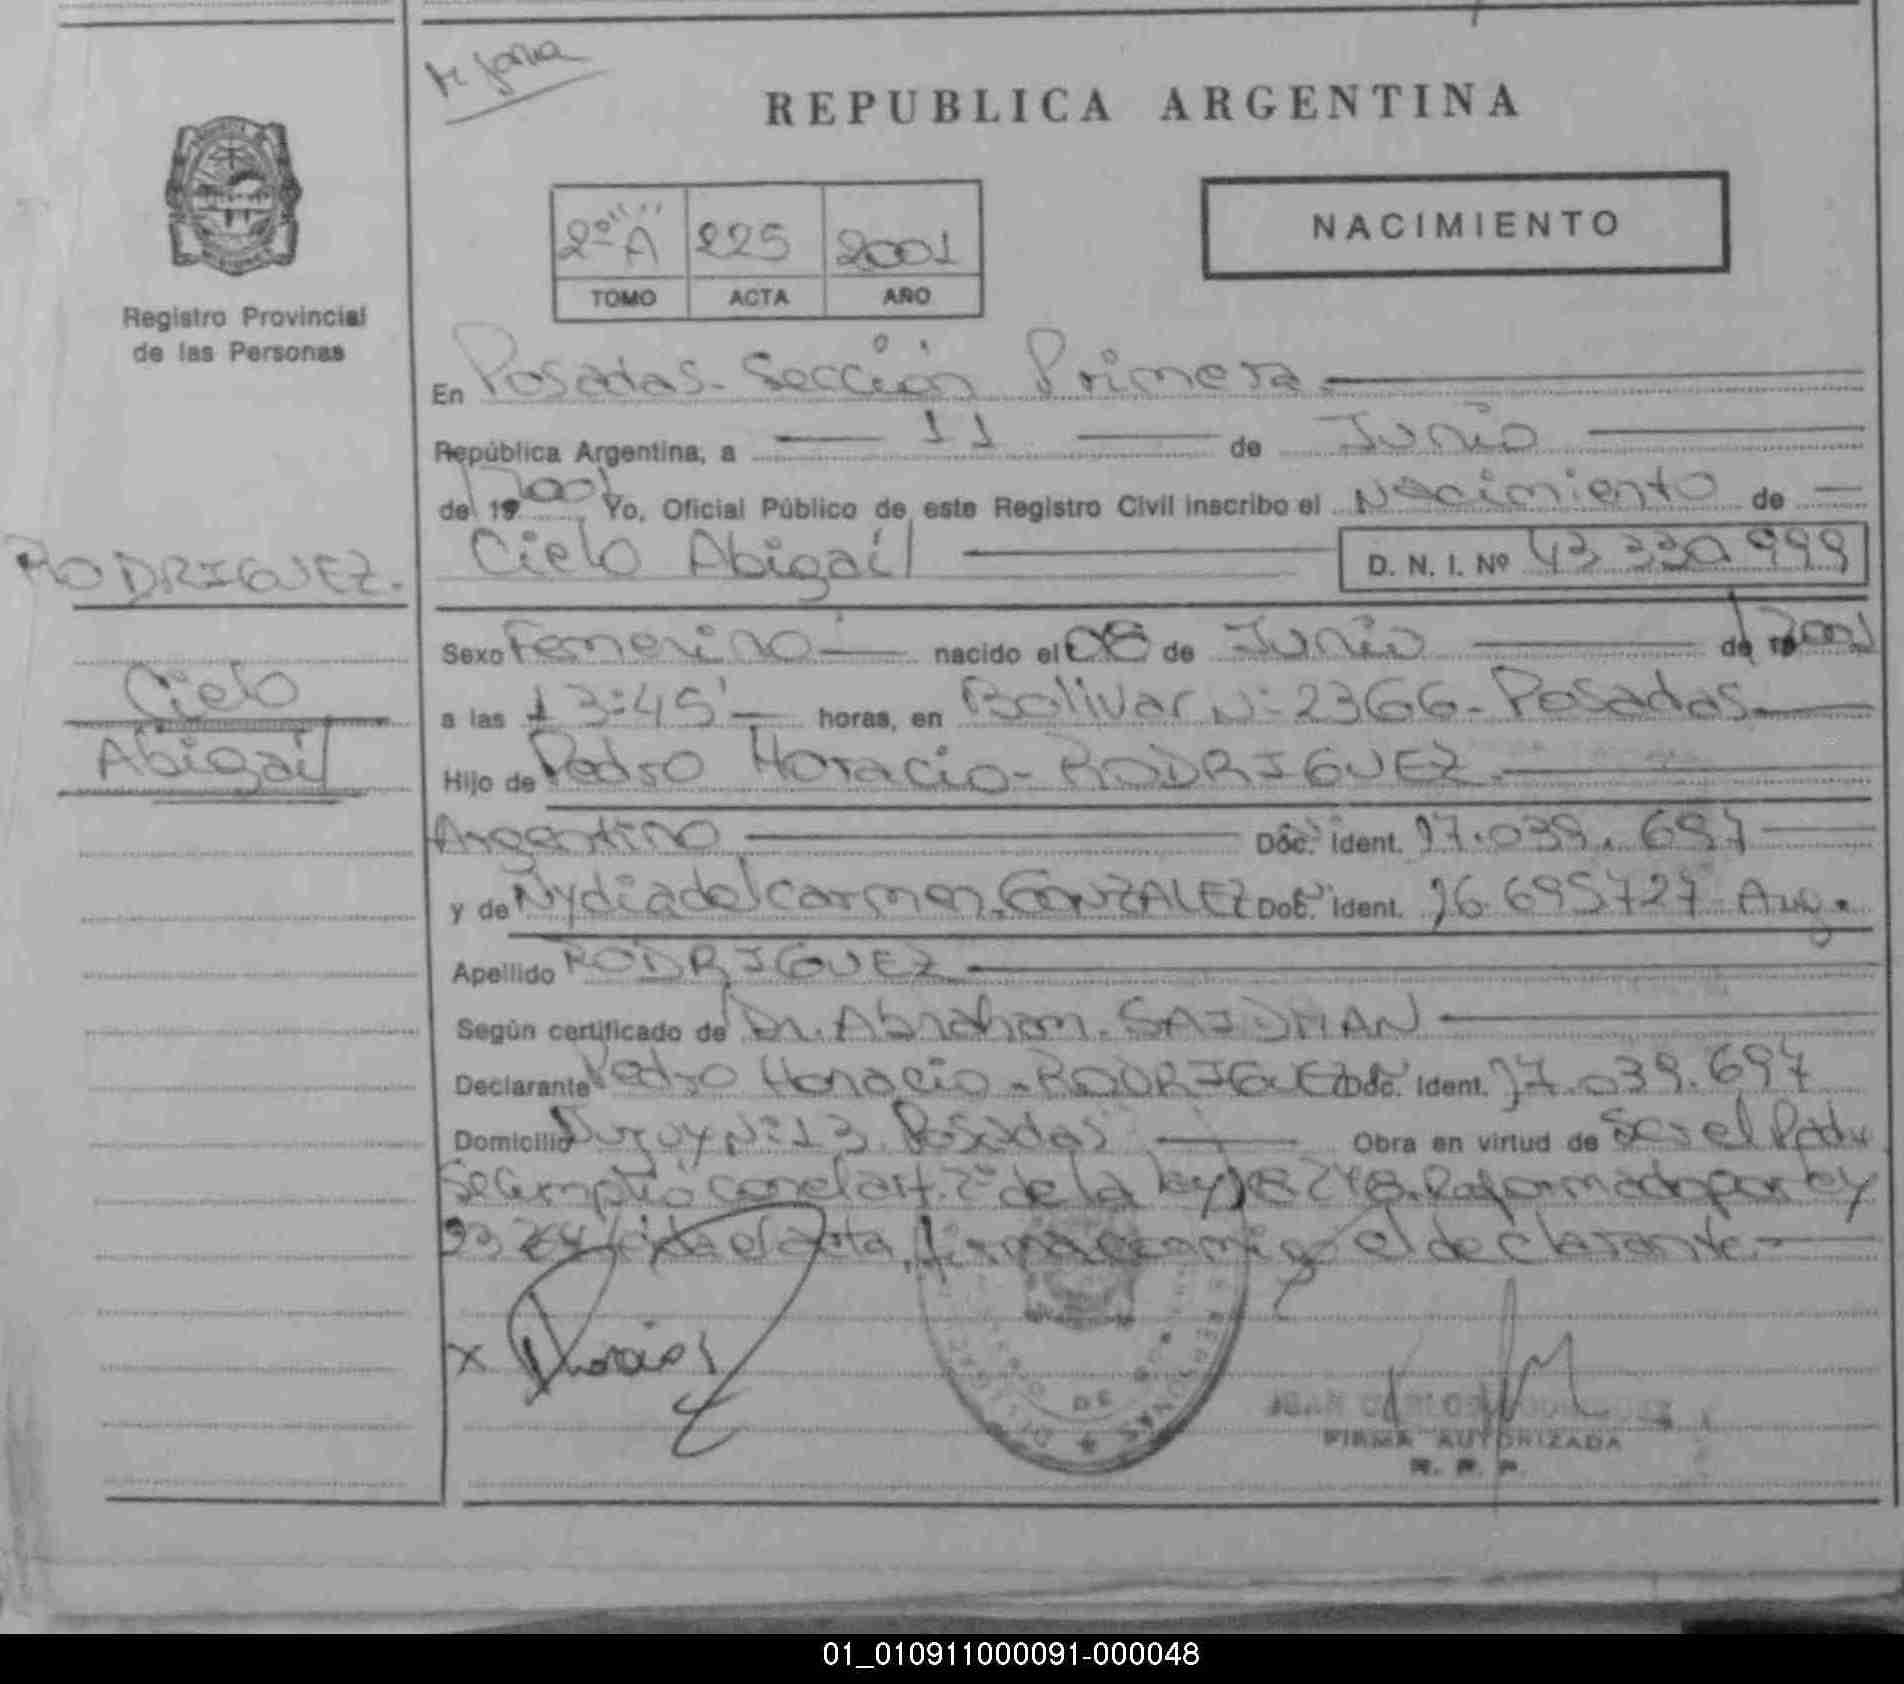 REPUBLICA ARGENTINA
2º "A" 225 2001
TOMO ACTA AÑO
NACIMIENTO
Registro Provincial
de las Personas
En Posadas - Sección Primera
República Argentina, a 11 de Junio
de 19 2001 Yo, Oficial Público de este Registro Civil inscribo el Nacimiento de
Cielo Abigail D. N. I. Nº 43.330.999
RODRIGUEZ.
Cielo
Abigail
Sexo Femenino nacido el 08 de Junio de 19 2001
a las 13:45' horas, en Bolivar Nº 2366 - Posadas
Hijo de Pedro Horacio - RODRIGUEZ
Argentino Doc. Ident. 17.039.697
y de Nydia del Carmen. GONZALEZ Doc. Ident. 16.695727 Arg.
Apellido RODRIGUEZ
Según certificado de Dr. Abraham. SAIDMAN
Declarante Pedro Horacio - RODRIGUEZ Doc. Ident. 17.039.697
Domicilio Jujuy Nº 13 Posadas Obra en virtud de ser el Padre
Se Cumplió con el art. 2º de la ley 18248. Reformado por ley
leida el acta, firma conmigo el declarante.-
x
FIRMA AUTORIZADA
R. P. P.
01_010911000091-000048